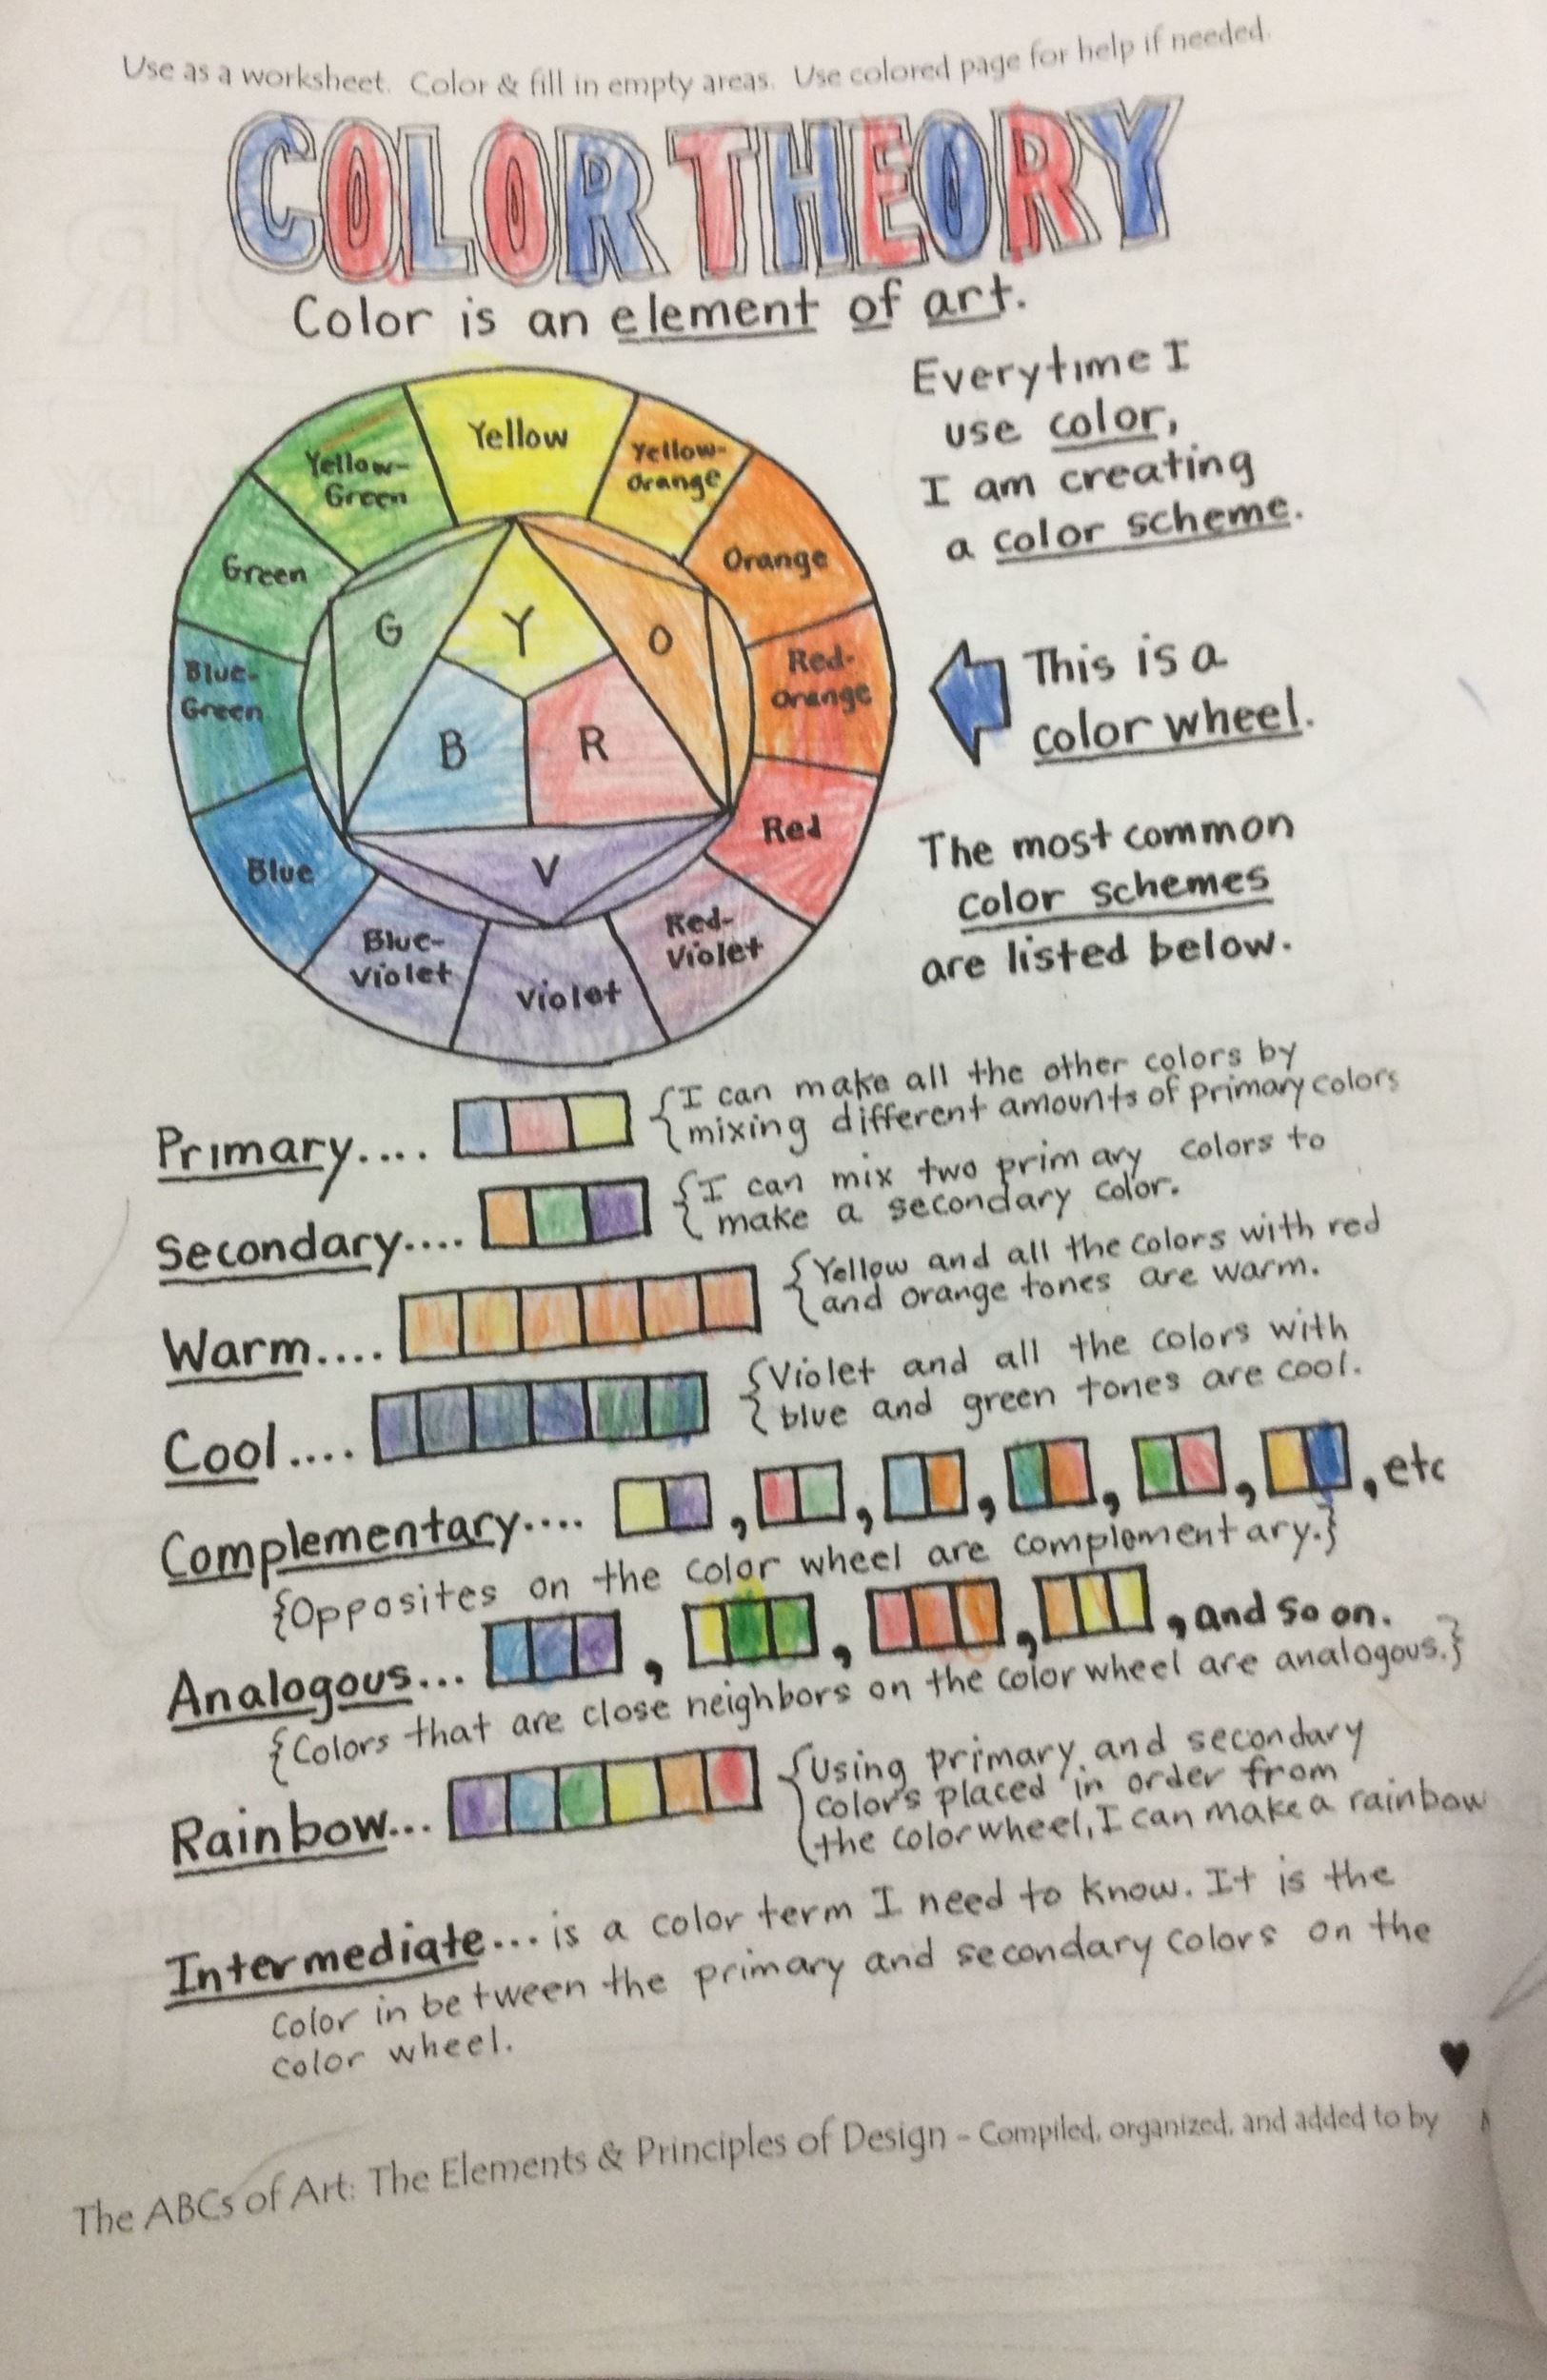 Use as a worksheet. Color & fill in empty areas. Use colored page for help if needed.
COLOR THEORY
Color is an element of art.
Everytime I
use color,
I am creating
a color scheme.
Yellow
Yellow-
Orange
Orange
Red-
Orange
Red
Red-
Violet
Violet
Blue-
Violet
Blue
Blue-
Green
Green
Yellow-
Green
G
Y
O
B
R
V
This is a
color wheel.
The most common
color schemes
are listed below.
Primary....
{I can make all the other colors by
mixing different amounts of primary colors
Secondary....
{I can mix two primary colors to
make a secondary color.
Warm....
{Yellow and all the colors with red
and orange tones are warm.
Cool....
{Violet and all the colors with
blue and green tones are cool.
Complementary.... , , , , , , etc
{Opposites on the color wheel are complementary.}
Analogous... , , , , and so on.
{Colors that are close neighbors on the color wheel are analogous.}
Rainbow...
{Using primary and secondary
colors placed in order from
the color wheel, I can make a rainbow
Intermediate... is a color term I need to know. It is the
color in between the primary and secondary colors on the
color wheel.
The ABCs of Art: The Elements & Principles of Design - Compiled, organized, and added to by